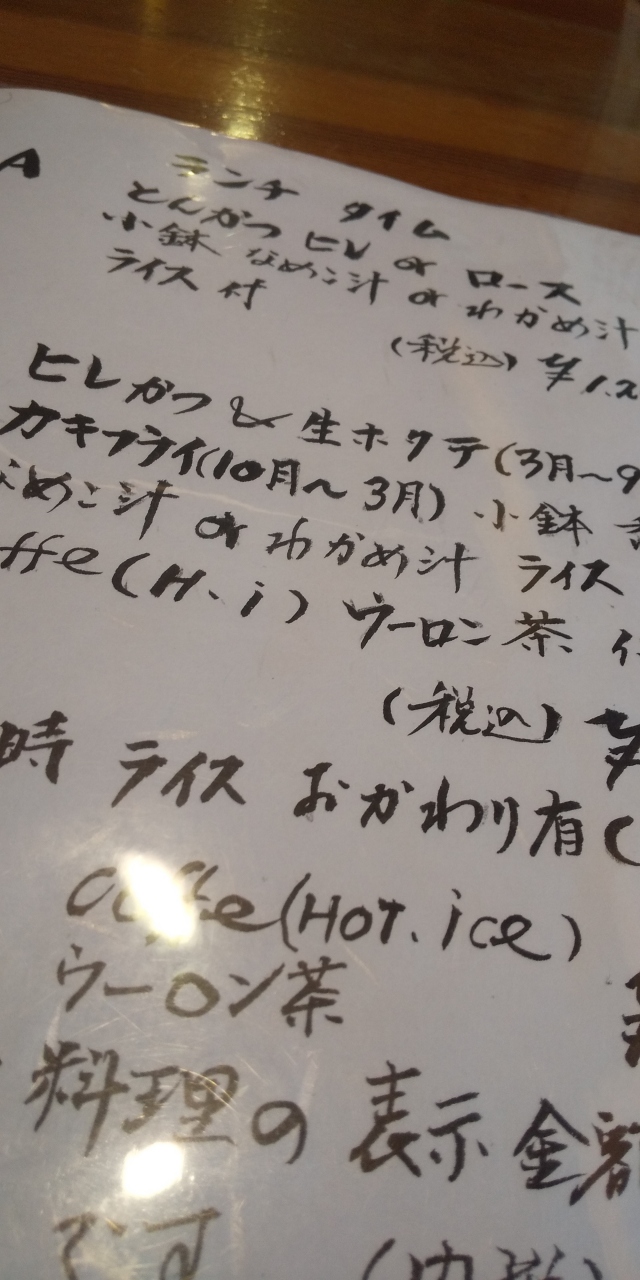 A ランチ タイム
とんかつ ヒレ or ロース
小鉢 なめこ汁 or わかめ汁
ライス 付
(税込) ¥1.2
ヒレかつ & 生ホタテ(3月～9
カキフライ(10月～3月) 小鉢
なめこ汁 or わかめ汁 ライス
ffe(H.i) ウーロン茶 付
(税込) ¥
時 ライス おかわり有(
Coffe(HOT.ice)
ウーロン茶
料理の 表示金額
です